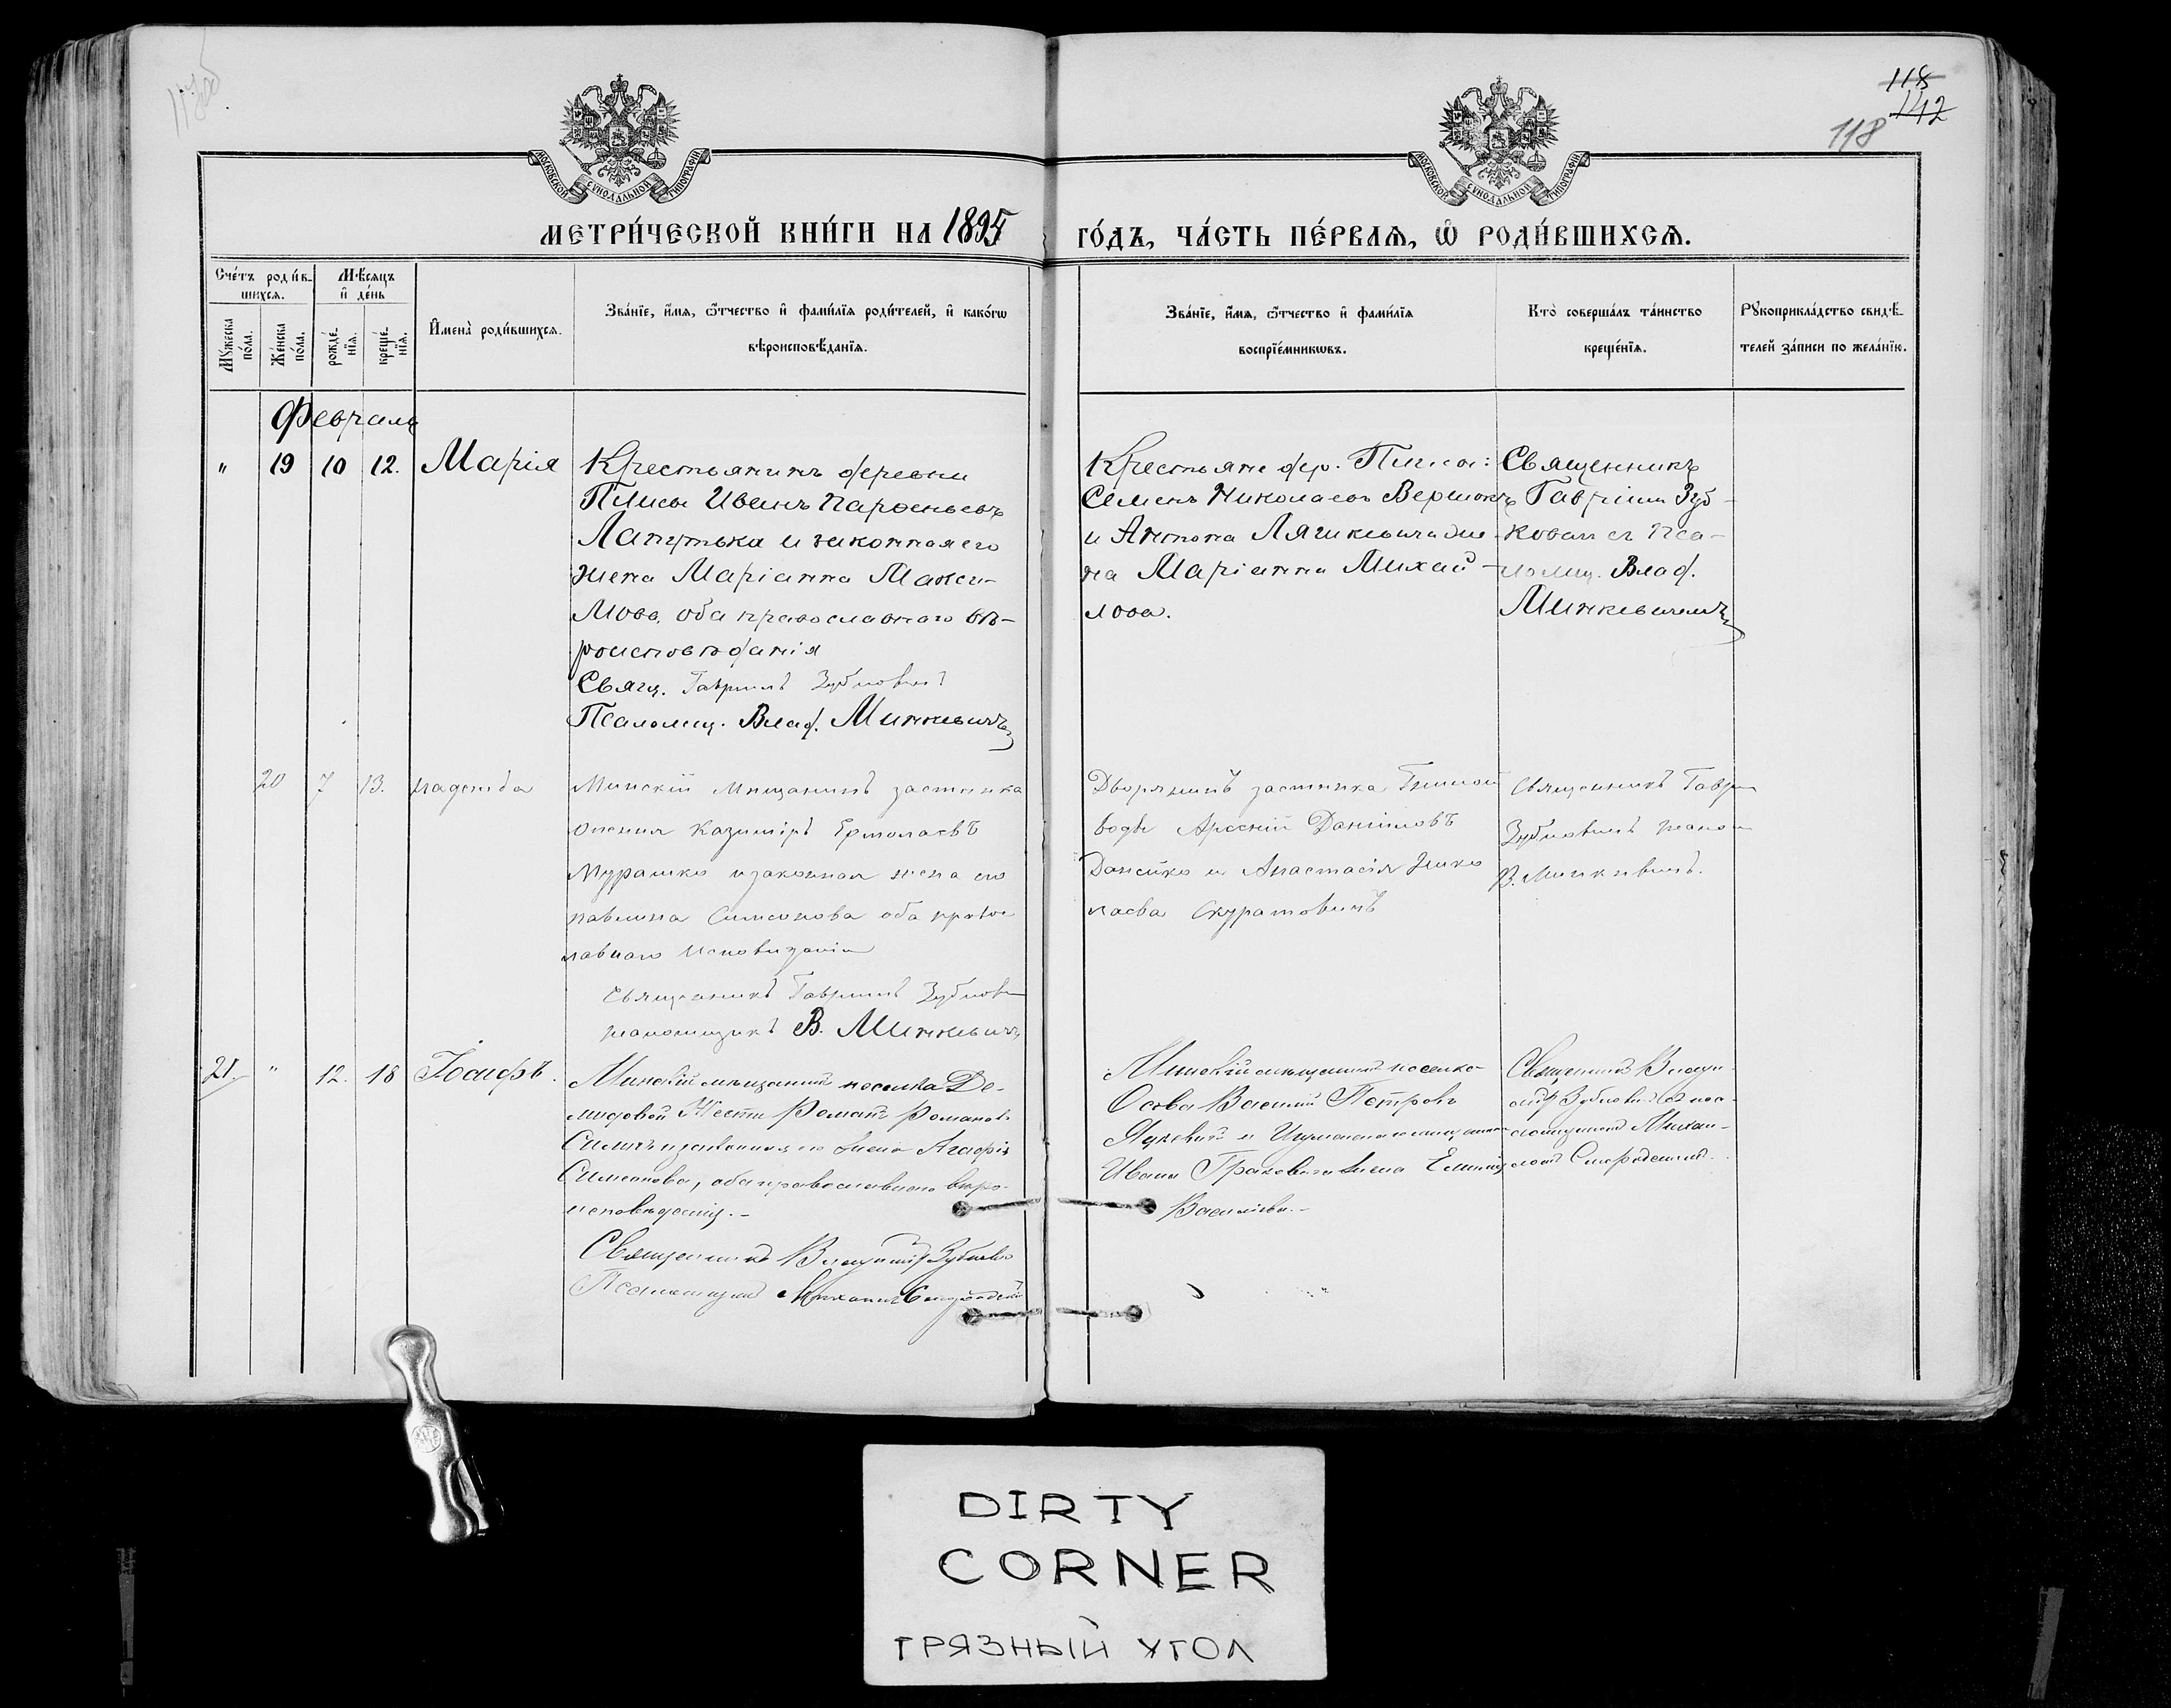 118
142
118
МОСКОВСКОЙ СѴНОДАЛЬНОЙ ТИПОГРАФІИ
МОСКОВСКОЙ СѴНОДАЛЬНОЙ ТИПОГРАФІИ
МЕТРИ́ЧЕСКОЙ КНИ́ГИ НА 1895
ГО́ДЪ, ЧА́СТЬ ПЕ́РВАѦ, Ѽ РОДИ́ВШИХСѦ.
Сче́тъ роди́в-
шихсѧ.
Мѣ́сѧцъ
и҆ де́нь
Мꙋ́жеска по́ла.
Же́нска по́ла.
рожде́нїѧ.
креще́нїѧ.
И҆мена̀ роди́вшихсѧ.
Зва́нїе, и҆́мѧ, ѻ҆́тчество и҆ фами́лїѧ роди́телей, и҆ како́гѡ
вѣроисповѣ́данїѧ.
Зва́нїе, и҆́мѧ, ѻ҆́тчество и҆ фами́лїѧ
воспрїе́мникѡвъ.
Кто̀ соверша́лъ та́инство
креще́нїѧ.
Рꙋкоприкла́дство свидѣ́-
телей за́писи по жела́нїю.
Февраль
" 19 10 12. Марія
Крестьянинъ деревни
Плисы Иванъ Парѳеньевъ
Лапутька и законная его
жена Маріанна Макси-
мова, оба православнаго вѣ-
роисповѣданія
Свящ. Гавріилъ
Псаломщ. Влад. Минкевичъ
Крестьяне дер. Плисы:
Семенъ Николаевъ Вершокъ
и Антона Ляшкевича же-
на Маріанна Михай-
лова.
Священникъ
Гавріилъ Зуб-
ковичъ съ Пса-
ломщ. Влад.
Минкевичемъ
20 7 13. Надежда
Минскій Мещанинъ застенка
Казиміръ Ермолаевъ
Мурашко и законная жена его
Павлина Симеонова оба правос
лавнаго Исповиданія
Священникъ Гавріилъ
псаломщикъ В. Минкевичъ
Дворянинъ застенка Гнилой
воды Арсеній Даниловъ
Данейко и Анастасія Нико
лаева Скуратовичъ
Священникъ Гаври
псалом
В. Минкевичъ.
21. " 12. 18 Іосифъ.
Минскій мѣщанинъ поселка Де-
мидовой Романъ Романовъ
и законная его жена Агафія
Симеонова, оба православнаго вѣро-
исповѣданія.-
Священникъ Владиміръ
Псаломщикъ Михаилъ
Минскій мѣщанинъ поселка
Осова Василій Петровъ
и Игуменскаго мещанина
Ивана жена
Васильева.-
Священникъ Влади-
міръ съ пса-
ломщикомъ Михаи-
ломъ
DIRTY
CORNER
ГРЯЗНЫЙ УГОЛ